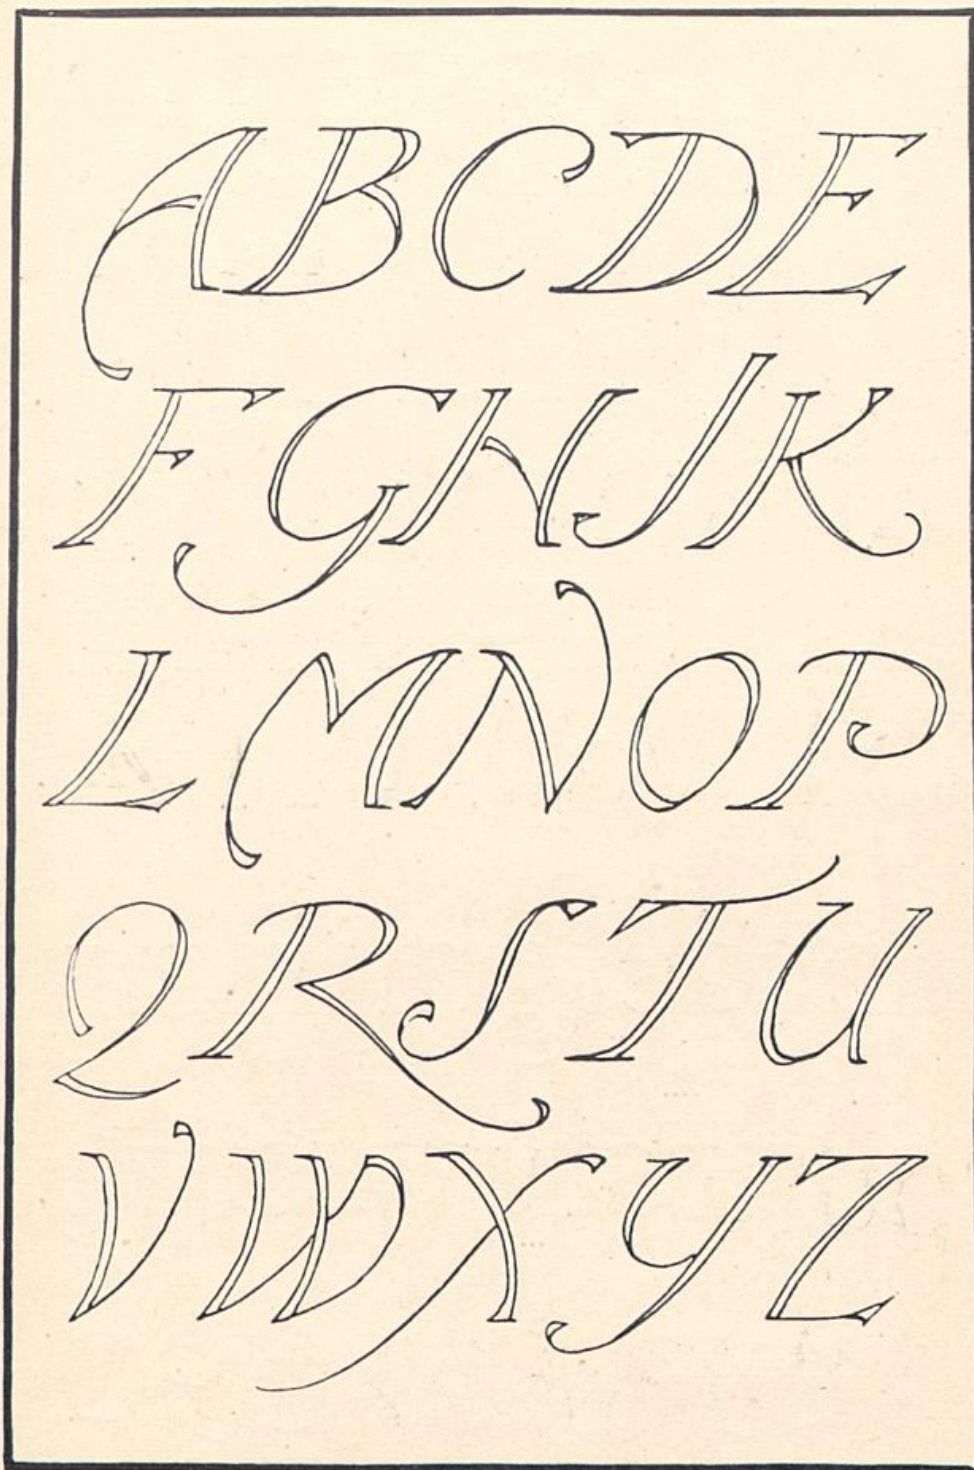 ABCDE
FGHJK
LMNOP
QRSTU
VWXYZ